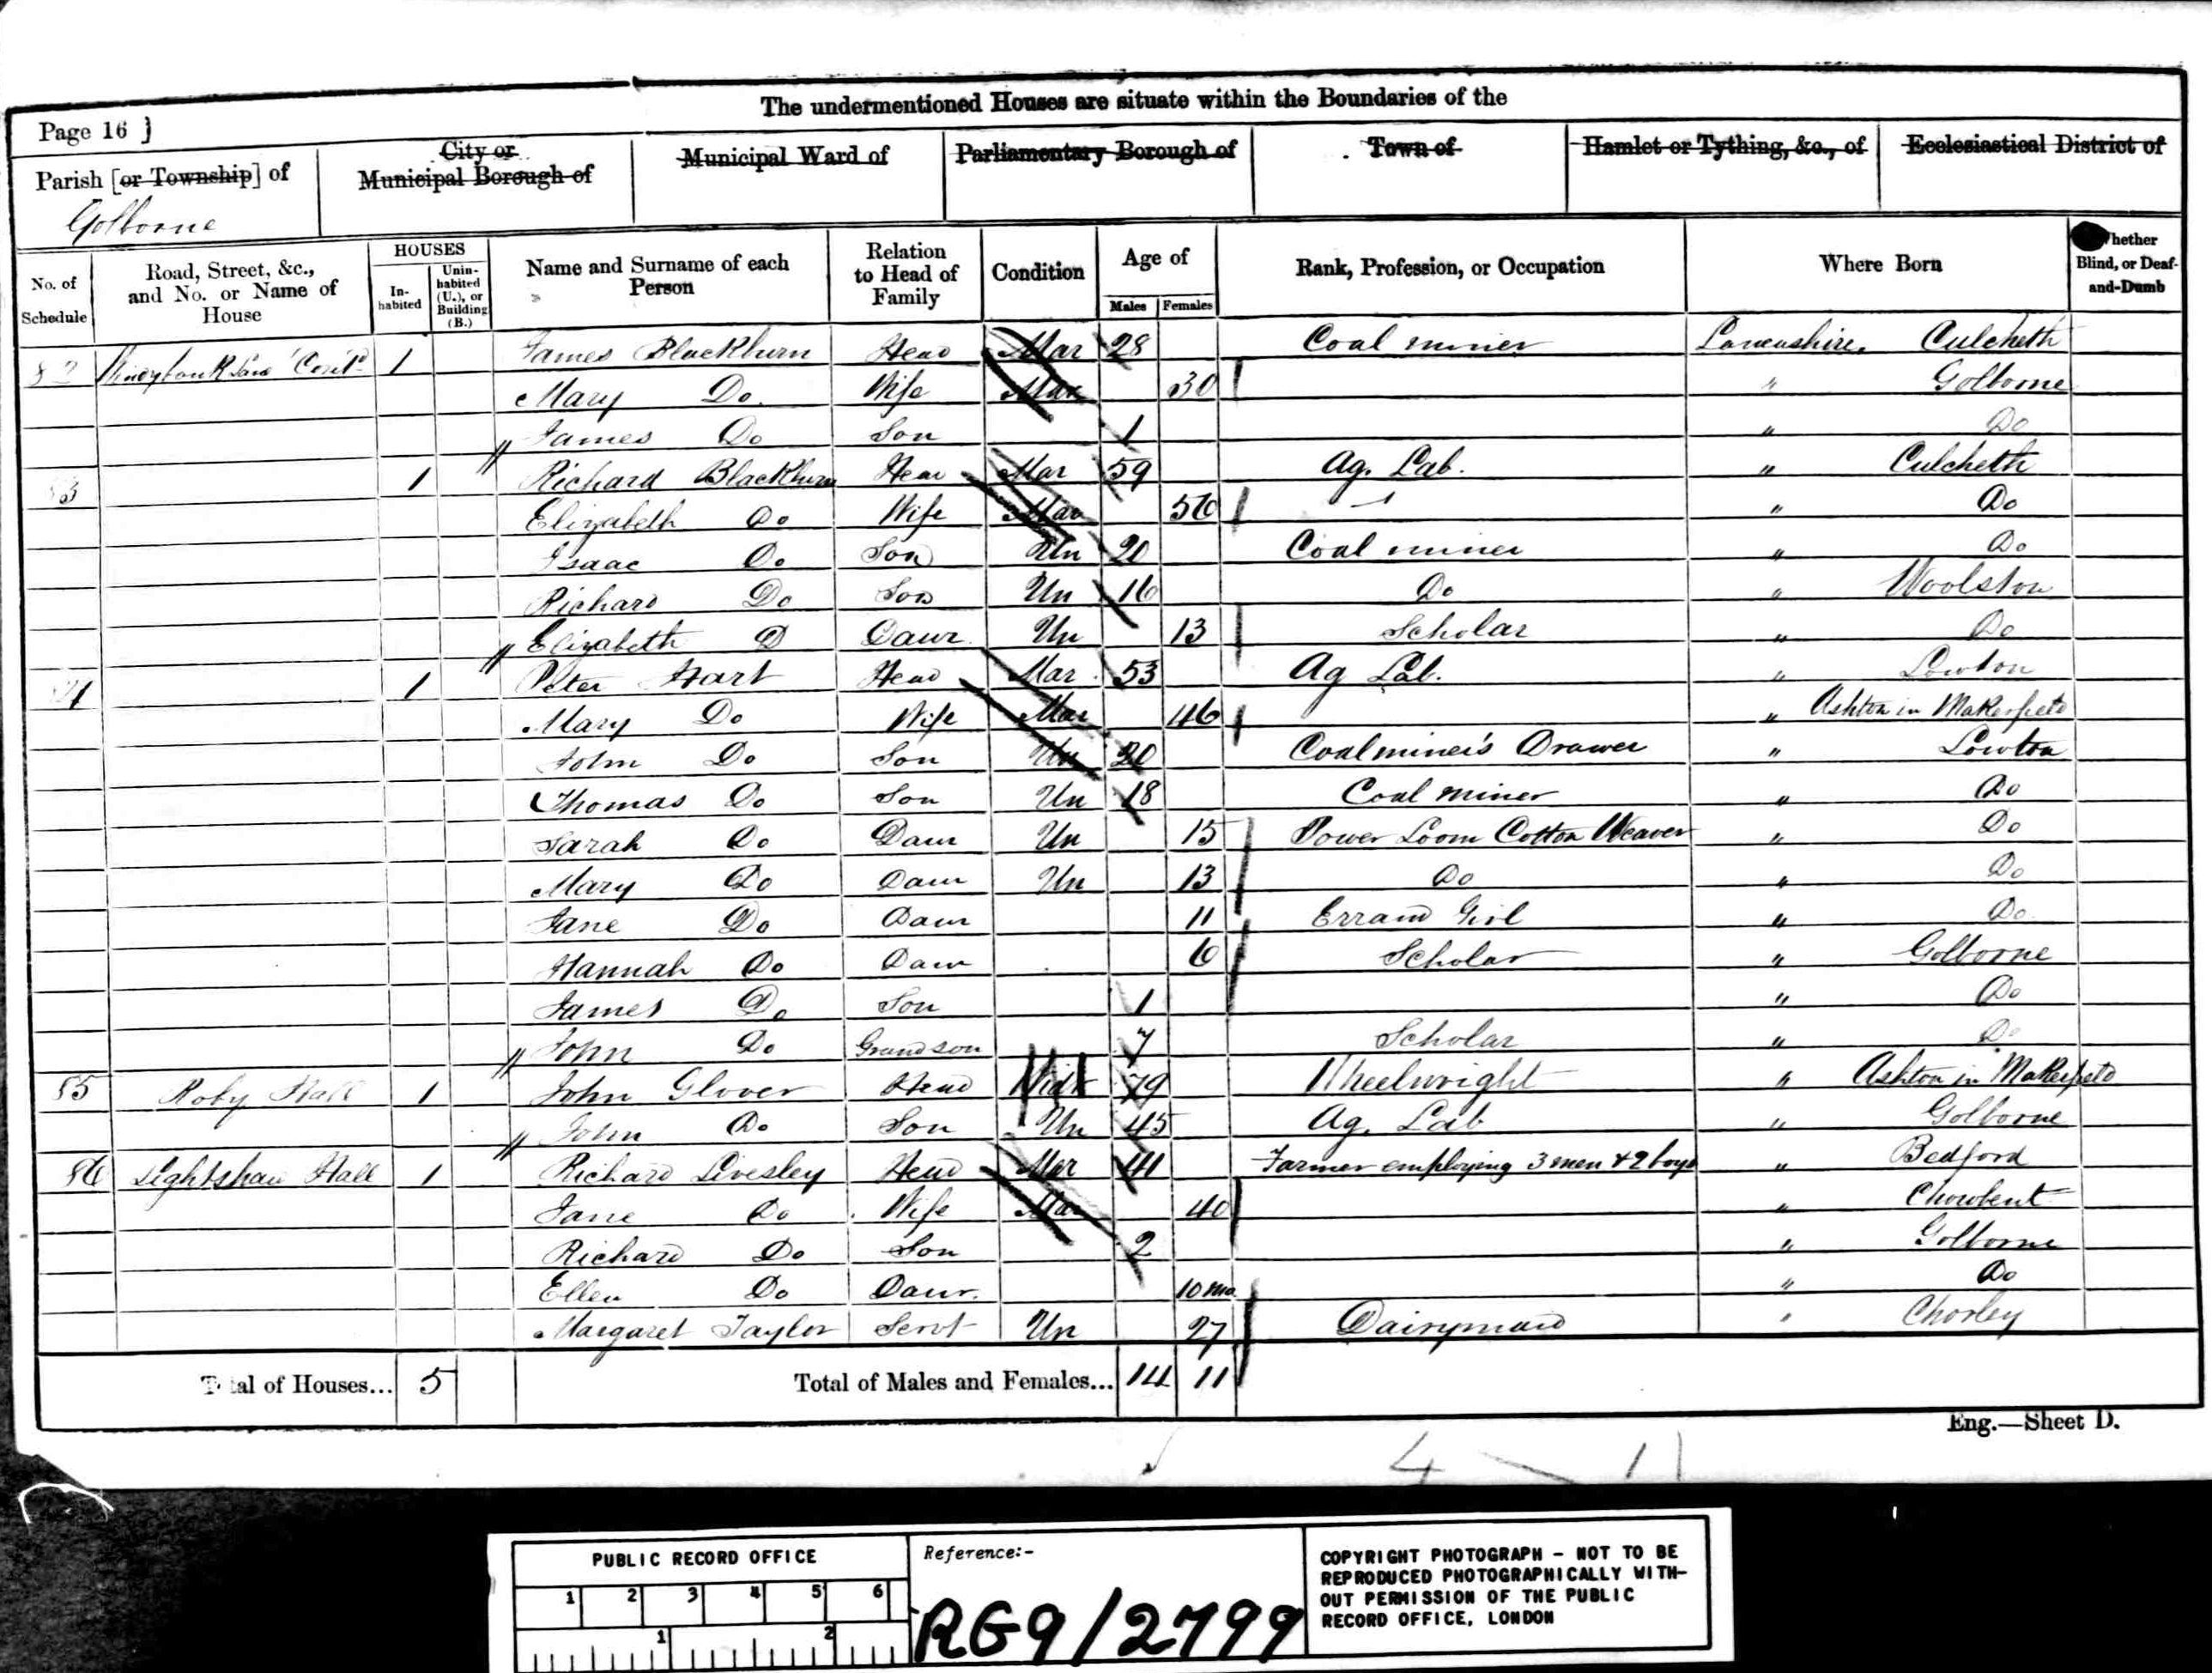 The undermentioned Houses are situate within the Boundaries of the
Page 16 }
Parish [or Township] of
Golborne
City or
Municipal Borough of
Municipal Ward of
Parliamentary Borough of
Town of
Hamlet or Tything, &c., of
Ecclesiastical District of
No. of Schedule
Road, Street, &c., and No. or Name of House
HOUSES
In-habited
Unin-habited (U.), or Building (B.)
Name and Surname of each Person
Relation to Head of Family
Condition
Age of
Males Females
Rank, Profession, or Occupation
Where Born
Whether Blind, or Deaf-and-Dumb
82 Lane Cont'd 1 James Blackburn Head Mar 28 Coal miner Lancashire, Culcheth
Mary Do. Wife Mar 30 " Golborne
James Do Son 1 " Do
83 1 Richard Blackburn Head Mar 59 Ag. Lab. " Culcheth
Elizabeth Do Wife Mar 56 " Do
Isaac Do Son Un 20 Coal miner " Do
Richard Do Son Un 16 Do " Woolston
Elizabeth D Daur Un 13 Scholar " Do
84 1 Peter Hart Head Mar 53 Ag Lab. " Lowton
Mary Do Wife Mar 46 " Ashton in Makerfield
John Do Son Un 20 Coalminer's Drawer " Lowton
Thomas Do Son Un 18 Coal miner " Do
Sarah Do Daur Un 15 Power Loom Cotton Weaver " Do
Mary Do Daur Un 13 Do " Do
Jane Do Daur 11 Errand Girl " Do
Hannah Do Daur 6 Scholar " Golborne
James Do Son 1 " Do
John Do Grandson 7 Scholar " Do
85 Roby Hall 1 John Glover Head Widr 79 Wheelwright " Ashton in Makerfield
John Do Son Un 45 Ag. Lab " Golborne
86 Lightshaw Hall 1 Richard Livesley Head Mar 41 Farmer employing 3 men & 2 boys " Bedford
Jane Do Wife Mar 40 " Chowbent
Richard Do Son 2 " Golborne
Ellen Do Daur. 10 mo " Do
Margaret Taylor Servt Un 27 Dairymaid " Chorley
Total of Houses... 5 Total of Males and Females... 14 11
Eng.—Sheet D.
4 11
PUBLIC RECORD OFFICE
1 2 3 4 5 6
1 2
Reference:-
RG9/2799
COPYRIGHT PHOTOGRAPH - NOT TO BE
REPRODUCED PHOTOGRAPHICALLY WITH-
OUT PERMISSION OF THE PUBLIC
RECORD OFFICE, LONDON